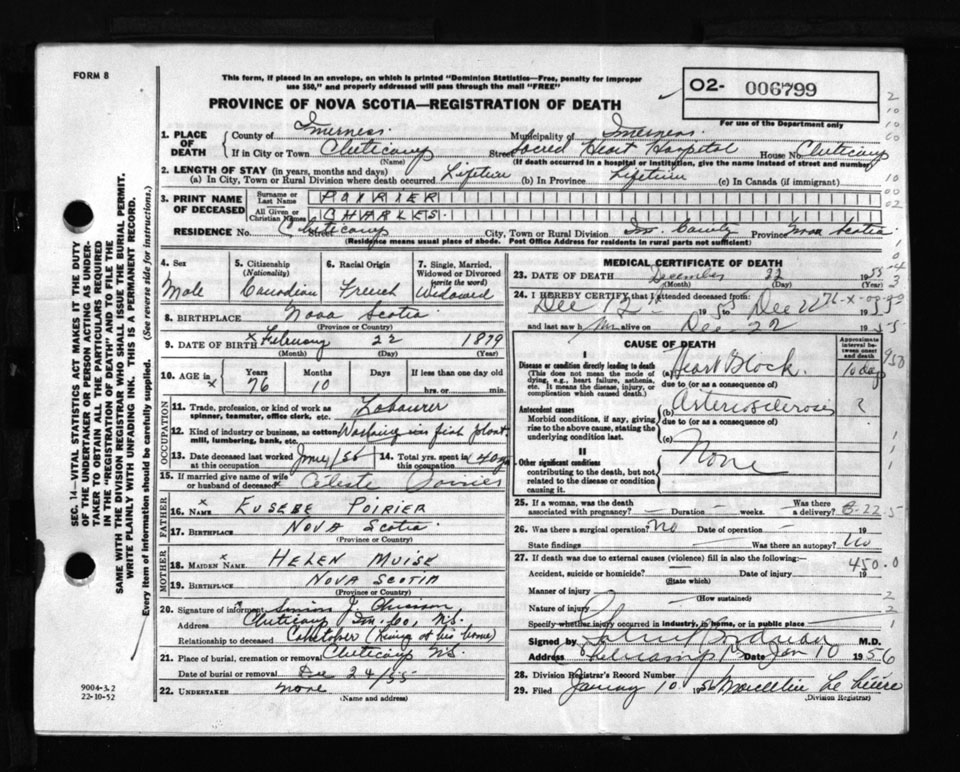 FORM 8
This form, if placed in an envelope, on which is printed "Dominion Statistics—Free, penalty for improper
use $50," and properly addressed will pass through the mail "FREE"
PROVINCE OF NOVA SCOTIA—REGISTRATION OF DEATH
O2- 006799
For use of the Dept. only
1. PLACE OF DEATH
County of Inverness. Municipality of Inverness.
If in City or Town Cheticamp Street Sacred Heart Hospital House No. Cheticamp
(Name) (If death occurred in a hospital or institution, give the name instead of street and number)
2. LENGTH OF STAY (in years, months and days)
(a) In City, Town or Rural Division where death occurred Lifetime (b) In Province Lifetime (c) In Canada (if immigrant)
3. PRINT NAME OF DECEASED
Surname or Last Name POIRIER
All Given or Christian Names CHARLES.
RESIDENCE No. Cheticamp Street City, Town or Rural Division Inv. County Province Nova Scotia
(Residence means usual place of abode. Post Office Address for residents in rural parts not sufficient)
4. Sex Male
5. Citizenship (Nationality) Canadian
6. Racial Origin French
7. Single, Married, Widowed or Divorced (write the word) Widowed
8. BIRTHPLACE Nova Scotia
(Province or Country)
9. DATE OF BIRTH x February 22 1879
(Month) (Day) (Year)
10. AGE in x Years 76 Months 10 Days If less than one day old
hrs. or min.
OCCUPATION
11. Trade, profession, or kind of work as spinner, teamster, office clerk, etc. Labourer
12. Kind of industry or business, as cotton mill, lumbering, bank, etc. Working in fish plant.
13. Date deceased last worked at this occupation
14. Total yrs. spent in this occupation 40
15. If married give name of wife or husband of deceased Celeste
FATHER
16. Name x EUSEBE POIRIER
17. Birthplace NOVA SCOTIA
(Province or Country)
MOTHER
18. MAIDEN NAME x HELEN MUISE
19. BIRTHPLACE NOVA SCOTIA
(Province or Country)
20. Signature of informant Simon J. Chiasson
Address Cheticamp Inv. Co., N.S.
Relationship to deceased (living at his home)
21. Place of burial, cremation or removal Cheticamp N.S.
Date of burial or removal Dec 24/55
22. UNDERTAKER None
(Name and address)
MEDICAL CERTIFICATE OF DEATH
23. DATE OF DEATH December 22 1955
(Month) (Day)
24. I HEREBY CERTIFY that I attended deceased from:
Dec 1955 Dec 22 1955
and last saw him alive on Dec 22 1955
CAUSE OF DEATH
Approximate interval between onset and death
I
Disease or condition directly leading to death
(This does not mean the mode of dying, e.g., heart failure, asthenia, etc. It means the disease, injury, or complication which caused death.)
(a) Heart Block. 10 days
due to (or as a consequence of)
Antecedent causes
Morbid conditions, if any, giving rise to the above cause, stating the underlying condition last.
(b) Arteriosclerosis ?
due to (or as a consequence of)
(c)
II
Other significant conditions
contributing to the death, but not related to the disease or condition causing it.
None
25. If a woman, was the death associated with pregnancy? — Duration — weeks. Was there a delivery?
26. Was there a surgical operation? No Date of operation — 19
State findings Was there an autopsy? No
27. If death was due to external causes (violence) fill in also the following:
Accident, suicide or homicide? Date of injury 19
(State which)
Manner of injury
(How sustained)
Nature of injury
Specify whether injury occurred in industry, in home, or in public place
Signed by M.D.
Address Cheticamp Date Jan 10 1956
28. Division Registrar's Record Number
29. Filed January 10 1956
(Division Registrar)
SEC. 14—VITAL STATISTICS ACT MAKES IT THE DUTY
OF THE UNDERTAKER OR PERSON ACTING AS UNDERTAKER TO OBTAIN ALL THE PARTICULARS REQUIRED
IN THE "REGISTRATION OF DEATH" AND TO FILE THE
SAME WITH THE DIVISION REGISTRAR WHO SHALL ISSUE THE BURIAL PERMIT.
WRITE PLAINLY WITH UNFADING INK. THIS IS A PERMANENT RECORD.
Every item of information should be carefully supplied. (See reverse side for instructions.)
9004-3.2
22-10-52
450.0